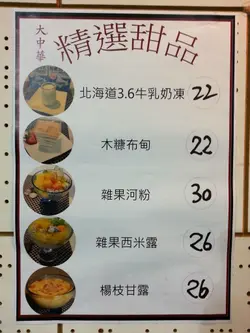 大中華
精選甜品
北海道3.6牛乳奶凍 22
木糠布甸 22
雜果河粉 30
雜果西米露 26
楊枝甘露 26